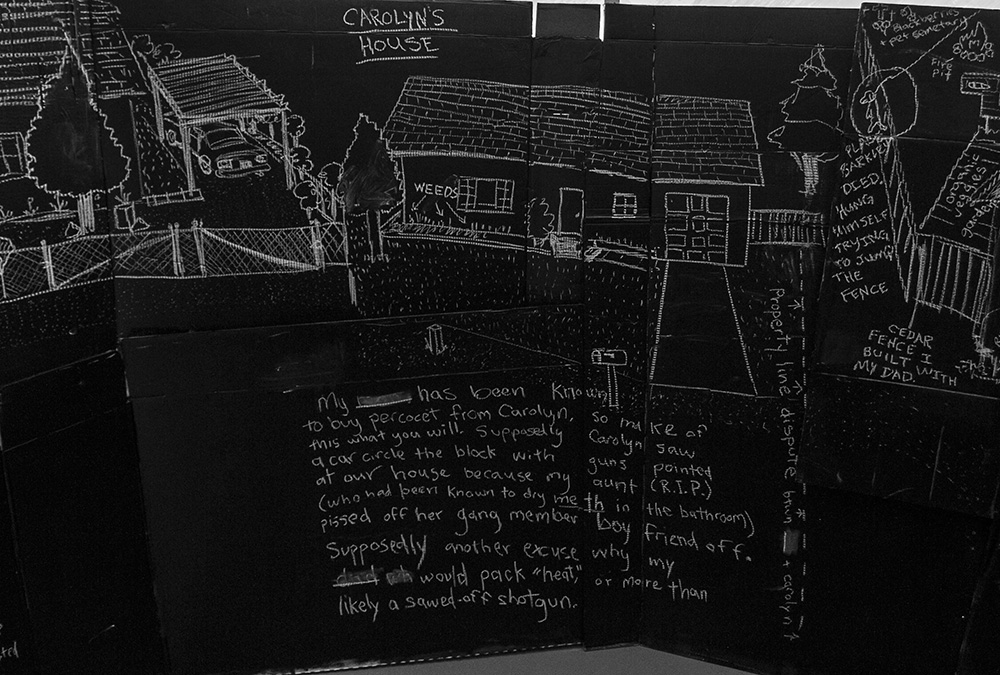 CAROLYN'S
HOUSE
WEEDS
My has been known
to buy percocet from Carolyn, so make of
this what you will. Supposedly Carolyn saw
a car circle the block with guns pointed
at our house because my aunt (R.I.P.)
(who had been known to dry meth in the bathroom)
pissed off her gang member boy friend off.
Supposedly another excuse why my
would pack "heat," or more than
likely a sawed-off shotgun.
property line dispute btwn + carolyn
PLACE
BARKLEY
DIED.
HUNG
HIMSELF
TRYING
TO JUMP
THE
FENCE
CEDAR
FENCE I
BUILT WITH
MY DAD.
+ pet cemetary
Fire
pit
organic
veggies
garden